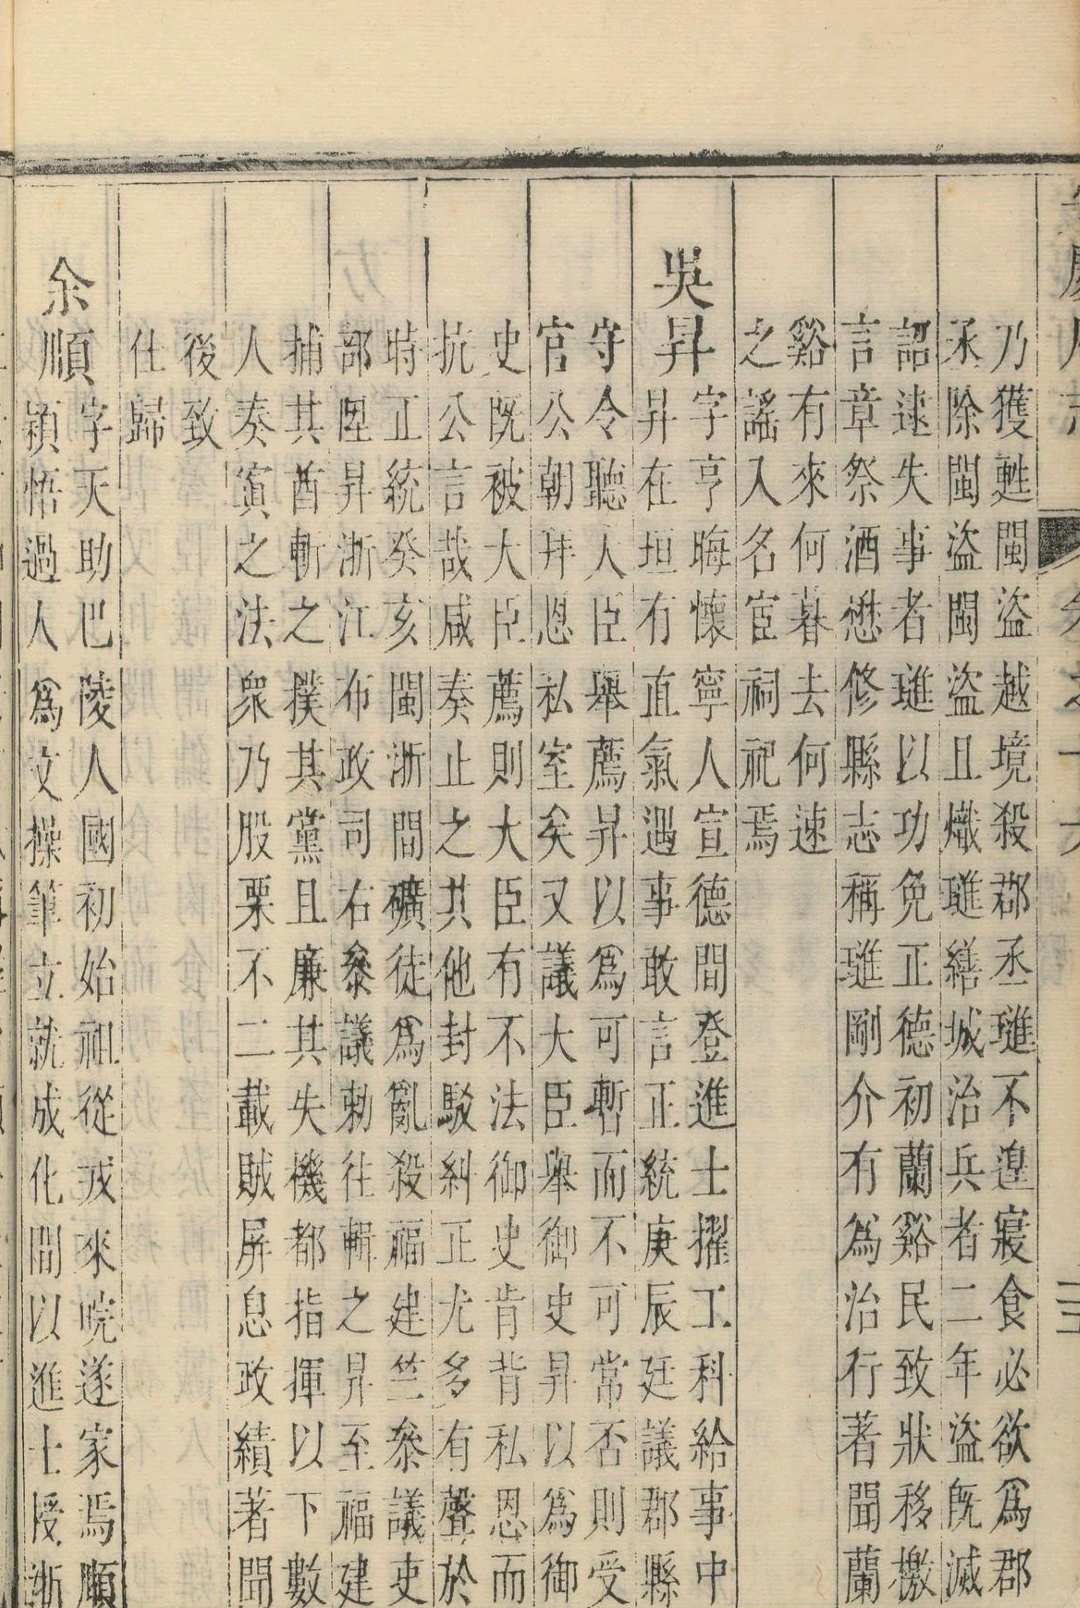 乃獲甦閩盜越境殺郡丞璡不遑寢食必欲爲郡
丞除閩盜閩盜且熾璡繕城治兵者二年盜旣滅
詔逮失事者璡以功免正德初蘭谿民致狀移檄
言章祭酒懋修縣志稱璡剛介有爲治行著聞蘭
谿有來何暮去何速
之謠入名宦祠祀焉
吳昇字亨晦懷寧人宣德間登進士擢工科給事中
昇在垣有直氣遇事敢言正統庚辰廷議郡縣
守令聽人臣舉薦昇以爲可暫而不可常否則受
官公朝拜恩私室矣又議大臣舉御史昇以爲御
史旣被大臣薦則大臣有不法御史肯背私恩而
抗公言哉咸奏止之其他封駁糾正尤多有聲於
時正統癸亥閩浙間礦徒爲亂殺福建竺參議吏
部陞昇浙江布政司右參議勅往輯之昇至福建
捕其酋斬之撲其黨且廉其失機都指揮以下數
人奏寘之法衆乃股栗不二載賊屏息政績著聞
後致
仕歸
余順字天助巴陵人國初始祖從戎來皖遂家焉順
穎悟過人爲文操筆立就成化間以進士授浙